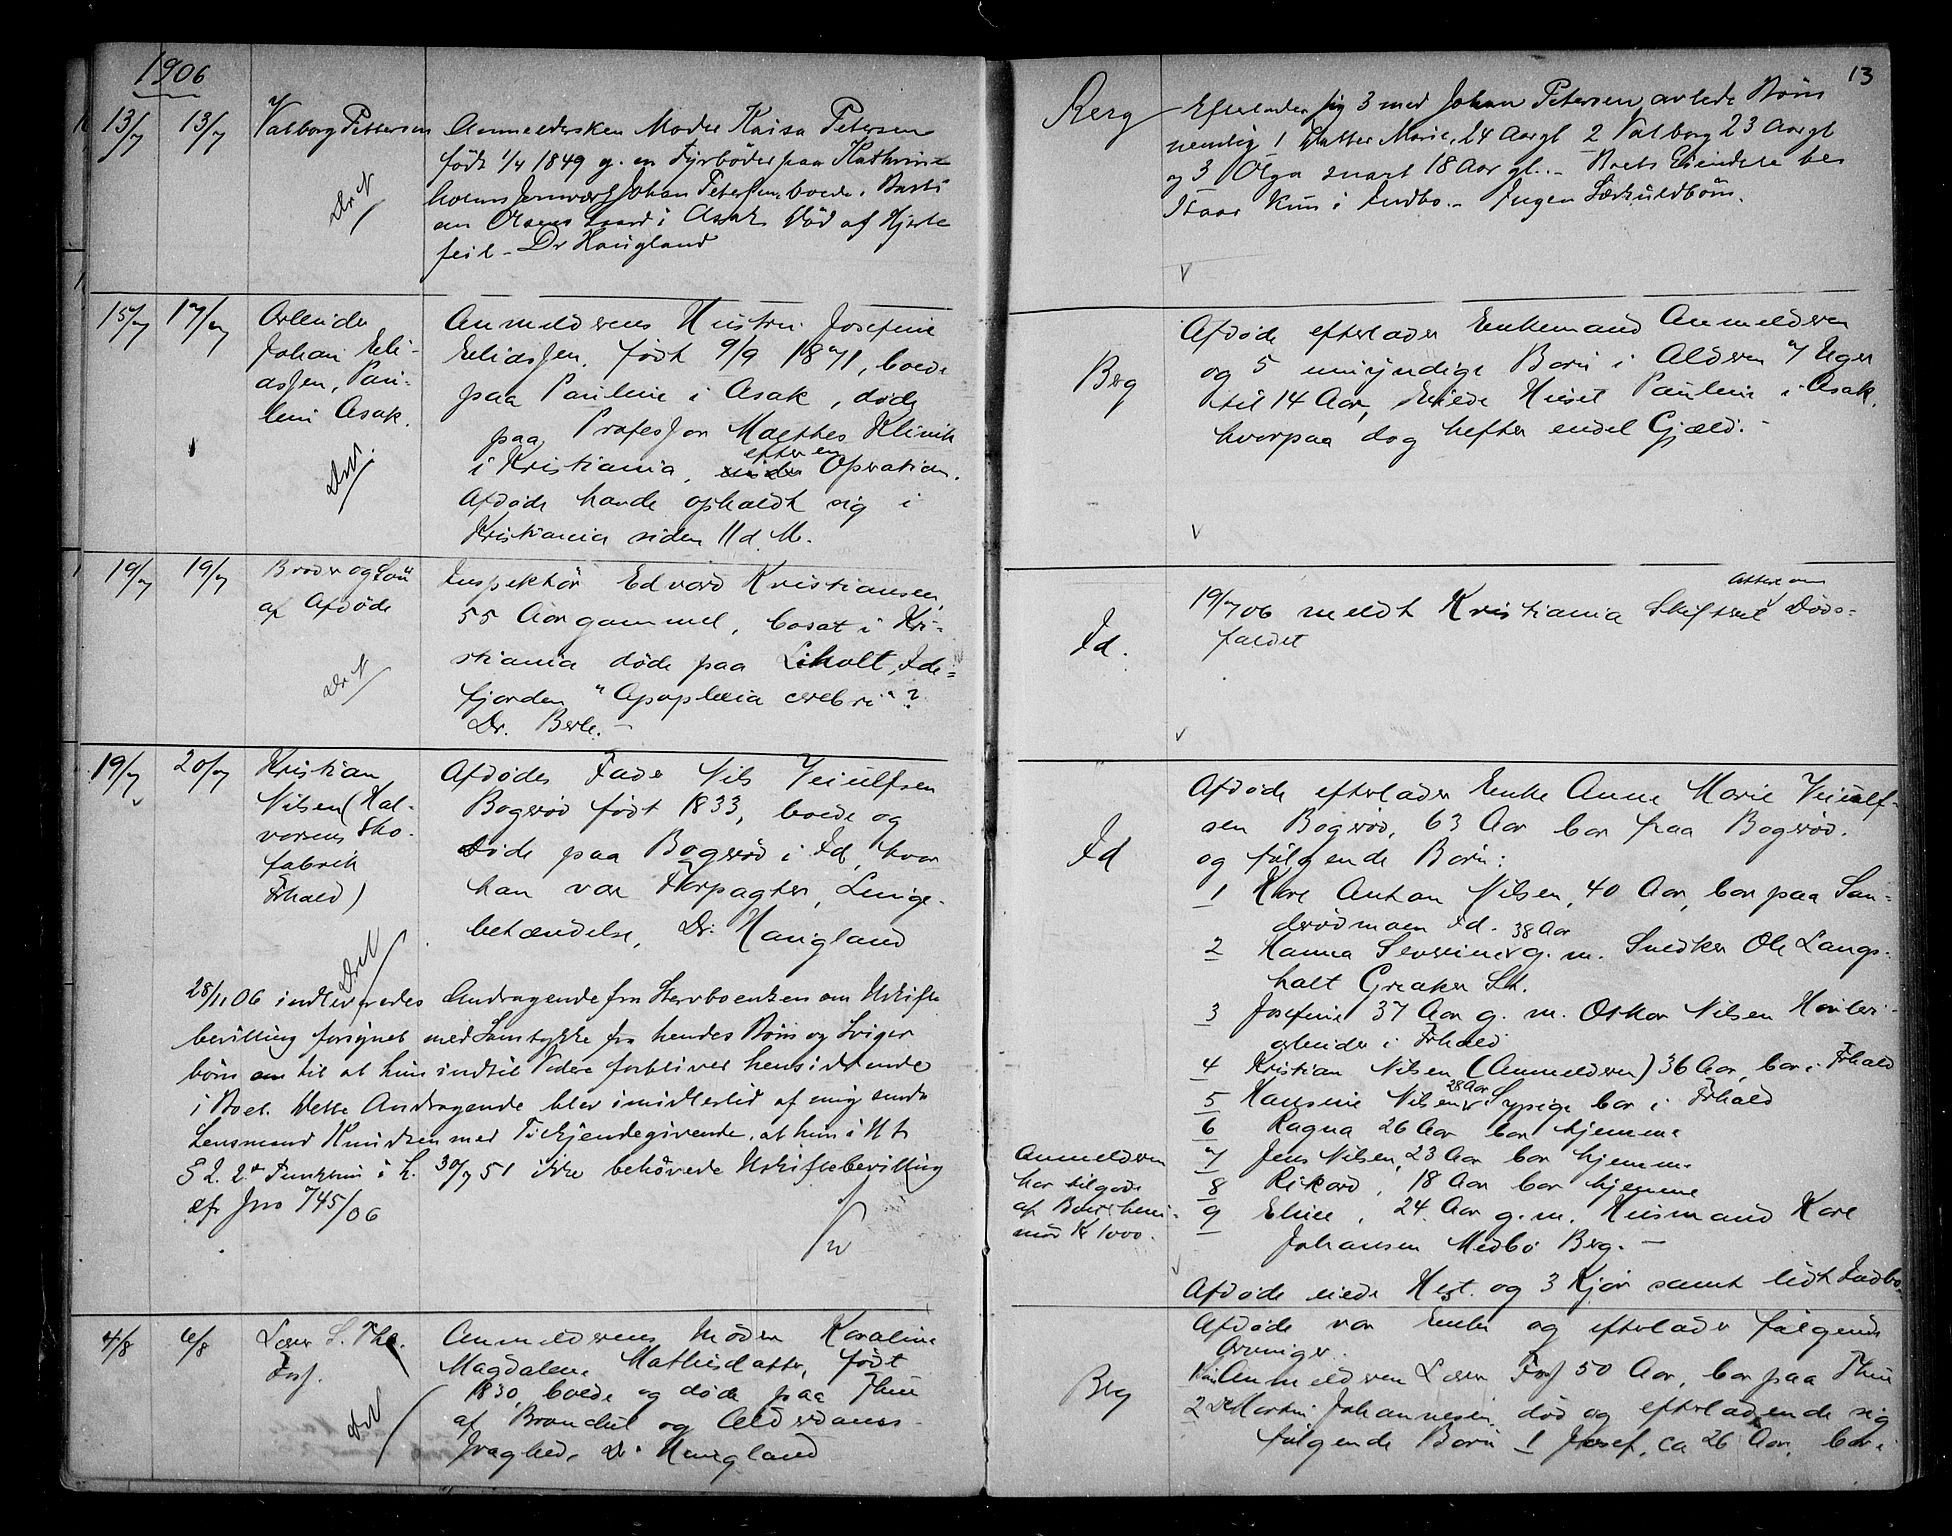 1906
13
13/7 13/7 Valborg Pettersen
Dr N
Anmeldersken Moder Kaisa Petersen
født 1/4 1849 g. m. Fyrbøder paa Kathrine
holms Jernværk Johan Petersen boede i
Olsens Gaard i Asak. Død af Hjerte
feil - Dr Haugland
Berg
Efterlader sig 3 med Johan Petersen avlede Børn
nemlig 1 Datter Marie, 24 Aar gl 2 Valborg 23 Aar gl
og 3 Olga snart 18 Aar gl. - Boets Eiendele be
staar kun i Indbo. - Ingen Særkuldbørn.
15/7 17/7 Arbeider
Johan Eli-
assen, Pau-
line Asak.
Anmelderens Hustru Josefine
Eliassen, født 9/9 1871, boede
paa Pauline i Asak, døde
paa Professor Malthes Klinik
i Kristiania, efter en Operation.
Afdøde havde opholdt sig i
Kristiania siden 11 d. M.
Berg
Afdøde efterlader Enkemand Anmelderen
og 5 umyndige Børn i Alderen 7 Uger
til 14 Aar, Eiede Huset Pauline i Asak,
hvorpaa dog hefter endel Gjæld. -
19/7 19/7 Broder og Søn
af Afdøde
Dr N
Inspektør Edvard Kristiansen,
55 Aar gammel, bosat i Kri-
stiania døde paa Liholt, Ide-
fjorden "Apoplexia cerebri"?
Dr. Berle. -
Id.
19/7 06 meldt Kristiania Skifteret Attest om Døds-
faldet
19/7 20/7 Kristian
Nilsen (Hal-
vorsens Sko-
fabrik
Frhald)
Dr N
Afdødes Fader Nils Veiulfsen
Bøgerød født 1833, boede og
døde paa Bøgerød i Id, hvor
han var Forpagter, Lunge-
betændelse, Dr. Haugland
Id
Afdøde efterlader Enke Anne Marie Veiulf-
sen Bøgerød, 63 Aar bor paa Bøgerød.
og følgende Børn:
1 Karl Anton Nilsen, 40 Aar, bor paa San-
derødmoen Id.
2 Hanna Severine 38 Aar g. m. Snedker Ole Langs-
holt Greaker St.
3 Josefine 37 Aar g. m. Oskar Nilsen Høvleri-
arbeider i Frhald
4 Kristian Nilsen (Anmelderen) 36 Aar, bor i Frhald
5 Hansine Nilsen 28 Aar Sypige bor i Frhald
6 Ragna 26 Aar bor hjemme
7 Jens Nilsen, 23 Aar bor hjemme
8 Rikard, 18 Aar bor hjemme
9 Elise, 24 Aar g. m. Husmand Karl
Johansen Medbø Berg. -
Afdøde eiede Hest og 3 Kjør samt lidt Indbo.
Anmelderen
har tilgode
af Boet heni-
mod Kr 1000.
28/11 06 indleveredes Andragende fra Stervboenken om Uskifte
bevilling forsynet med Samtykke fra hendes Børn og Sviger
børn om til at hun indtil Videre forbliver hensiddende
i Boet. Dette Andragende blev imidlertid af mig sendt
Lensmand Knudsen med Tilkjendegivende, at hun i
§ 2. 2det Punktum i L. 30/7 51 ikke behøvede Uskiftebevilling
cfr Jno 745/06
4/8 6/8 Lærer L. Thr.
Foss.
Dr N
Anmelderens Moder Karoline
Magdalene Mathisdatter, født
1830, boede og døde paa Thue
af Brandsel og Alderdoms-
svaghed. Dr Haugland
Berg
Afdøde var Enke og efterlader følgende
Arvinger.
1 Anmelderen Lærer Foss 50 Aar, bor paa Thue
2 Martin Johannesen, død og efterladende sig
følgende Børn 1 Josef, ca 26 Aar, bor i